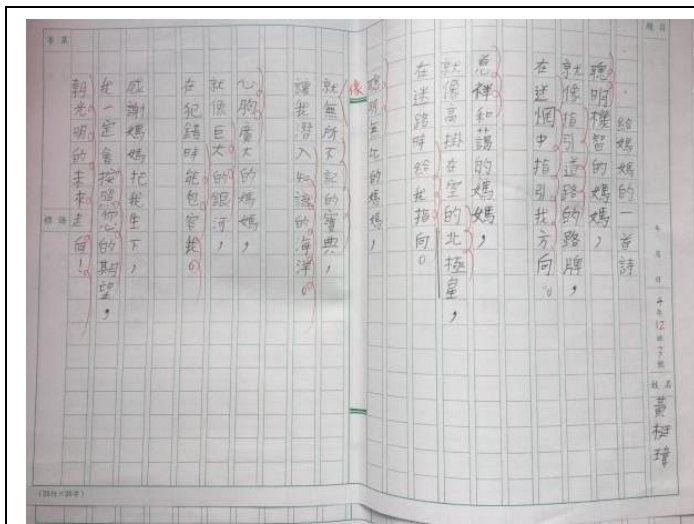 題目
年 月 日
4年12班7號
姓名
黃梃瑋
給媽媽的一首詩
聰明機智的媽媽，
就像指引道路的路牌，
在迷惘中指引我方向。
慈祥和藹的媽媽，
就像高掛在空的北極星，
在迷路時給我指向。
聰明無比的媽媽，
像
就無所不記的寶典，
讓我潛入知識的海洋。
心胸廣大的媽媽，
就像巨大的銀河，
在犯錯時能包容我。
感謝媽媽把我生下，
我一定會按照您的期望，
朝光明的未來走向！
等第
標語